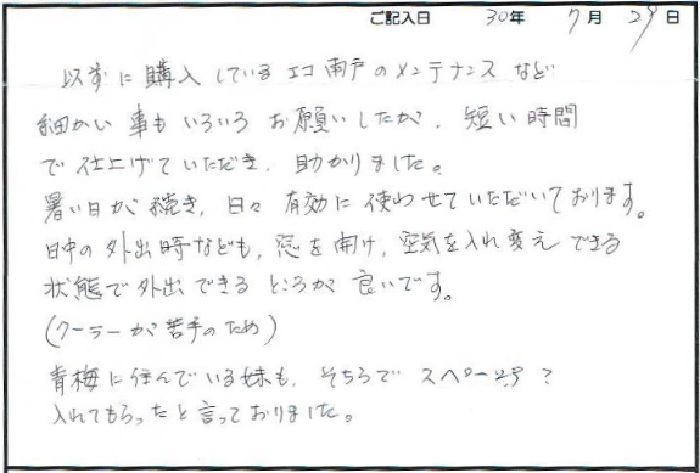 ご記入日 30年 7月 29日
以前に購入しているエコ雨戸のメンテナンスなど
細かい事もいろいろお願いしたが、短い時間
で仕上げていただき、助かりました。
暑い日が続き、日々有効に使わせていただいております。
日中の外出時なども、窓を開け、空気を入れ変えできる
状態で外出できるところが良いです。
(クーラーが苦手のため)
青梅に住んでいる妹も、そちらでスペーシア?
入れてもらったと言っておりました。